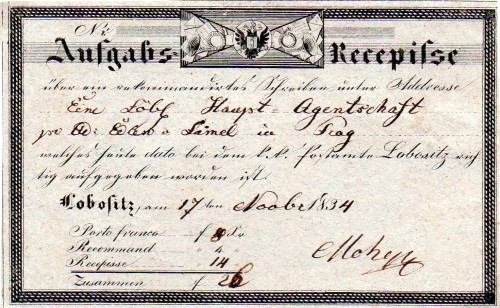 Nr.
Aufgabs-Recepisse
über ein rekommandirtes Schreiben unter Addresse
Eine Löbl Haupt-Agentschaft
in Prag
welches heute dato bei dem k.k. Postamte Lobositz rich
tig aufgegeben worden ist.
Lobositz, am 17 ten Novbr 1834
Porto franco f 8 Xr
Recommand 4
Recepisse 14
Zusammen f 26